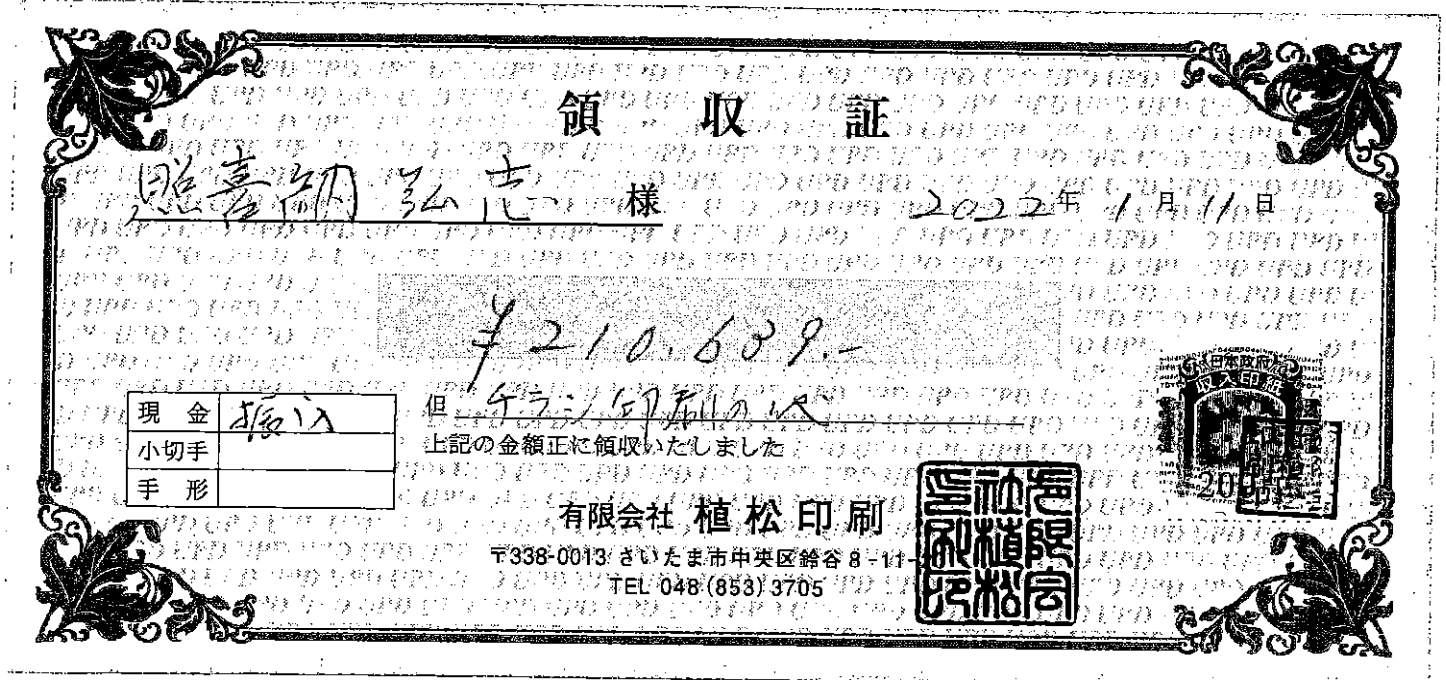 領収証
照喜納 弘志 様
2022年 1月 11日
¥210,639.-
現金 振込
小切手
手形
但 チラシ印刷の代
上記の金額正に領収いたしました
日本政府
収入印紙
200
有限会社 植松印刷
〒338-0013 さいたま市中央区鈴谷8-11-
TEL 048(853)3705
有限会社植松印刷印